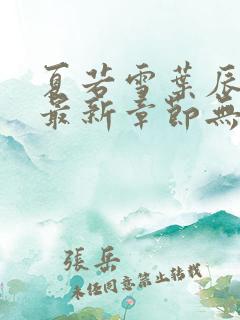 夏若雪葉辰
最新章節無
張岳
未经同意禁止转载